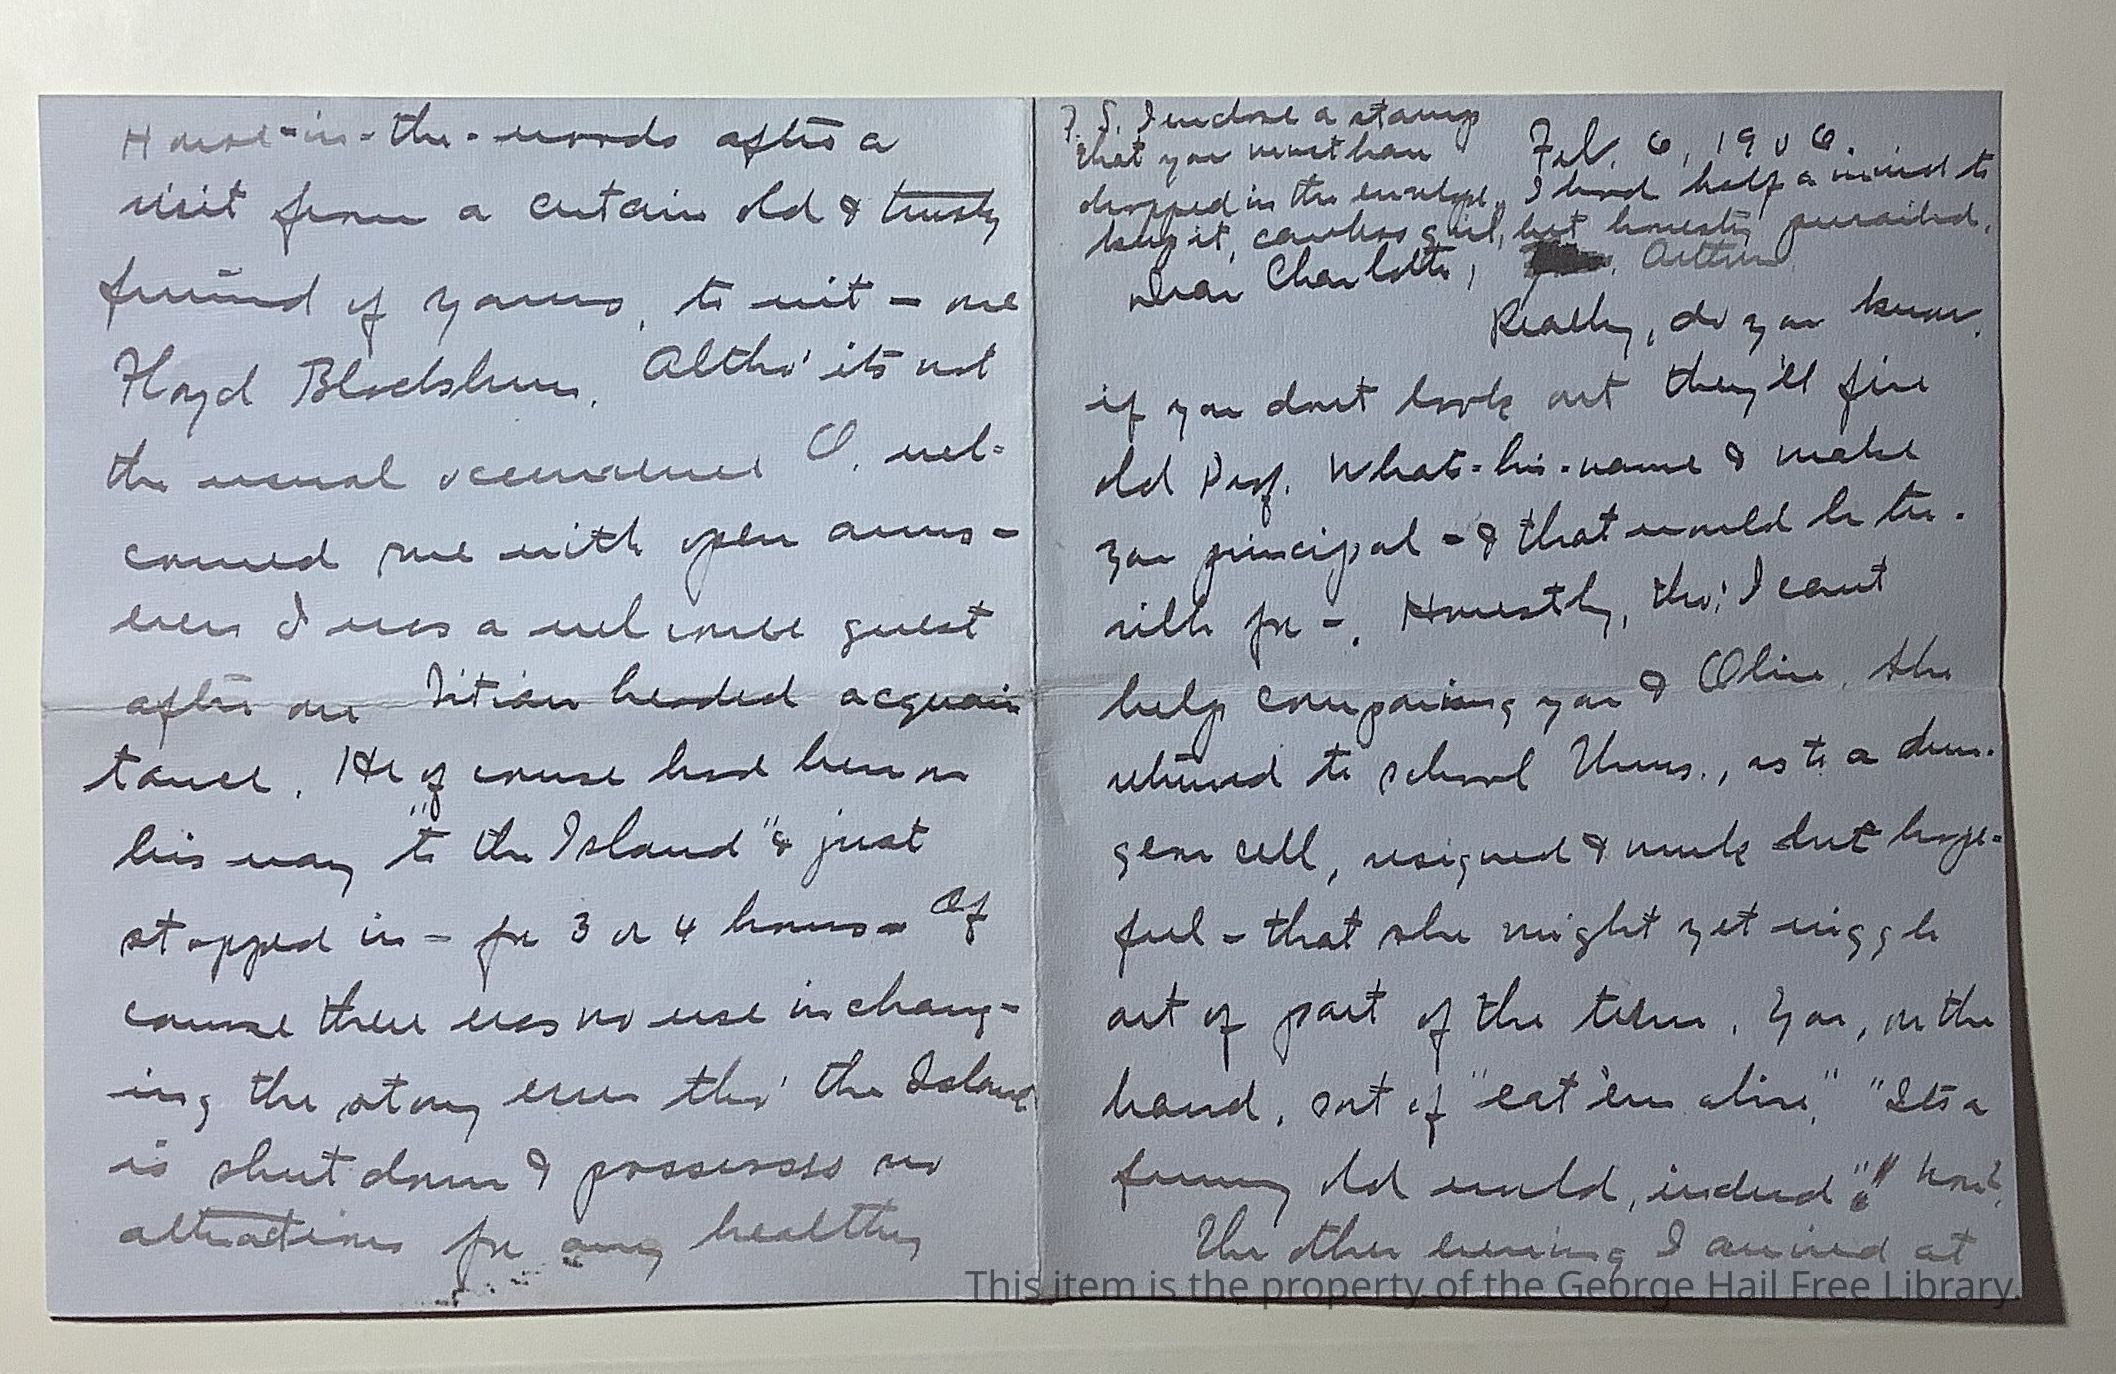 P.S. I enclose a stamp
that you must have
dropped in the envelope, I had half a mind to
keep it, careless girl, but honesty prevailed.
Arthur
Feb. 6, 1906.
Dear Charlotte,
Really, do you know,
if you dont look out they'll fire
old Prof. What-his-name & make
you principal - & that would be ter-
rible for -. Honestly, tho', I cant
help comparing you & Olive. She
returned to school Thurs., as to a dun-
geon cell, resigned & meek but hope-
ful - that she might yet wiggle
out of part of the term. You, on the
hand, sort of "eat 'em alive," "Its a
funny old world, indeed"!!
The other evening I arrived at
House-in-the-woods after a
visit from a certain old & trusty
friend of yours, to wit - one
Floyd
Altho' its not
the usual occurrence O. wel-
comed me with open arms -
even I was a welcome guest
after one Titian headed acquain
tance. He of course had been on
his way "to the Island" & just
stopped in - for 3 or 4 hours - Of
course there was no use in chang-
ing the story even tho' the Island
is shut down & possesses no
attractions for any healthy
This item is the property of the George Hail Free Library.